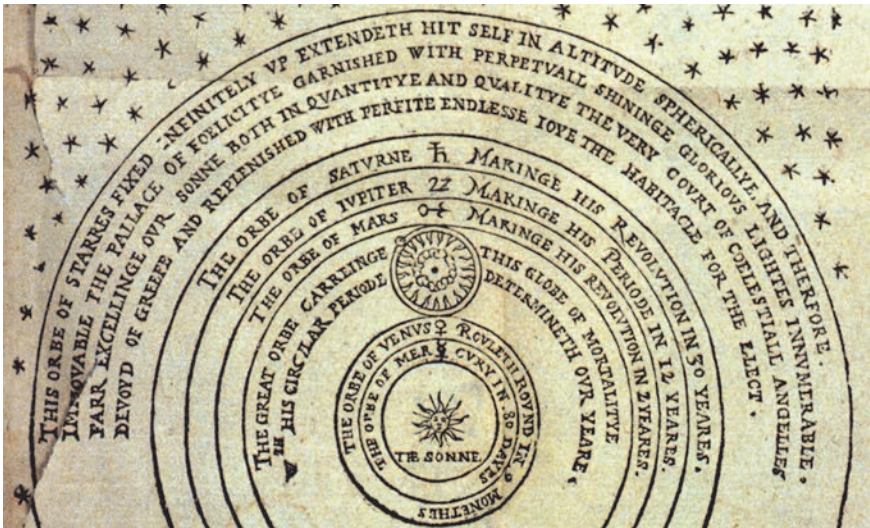 THIS ORBE OF STARRES FIXED INFINITELY VP EXTENDETH HIT SELF IN ALTITVDE SPHERICALLYE, AND THERFORE.
IMMOVABLE THE PALLACE OF FOELICITYE GARNISHED WITH PERPETVALL SHININGE GLORIOVS LIGHTES INNVMERABLE.
FARR EXCELLINGE OVR SONNE BOTH IN QVANTITYE AND QVALITYE THE VERY COVRT OF COELESTIALL ANGELLES
DEVOYD OF GREEFE AND REPLENISHED WITH PERFITE ENDLESSE IOYE THE HABITACLE FOR THE ELECT.
THE ORBE OF SATVRNE ♄ MAKINGE HIS REVOLVTION IN 30 YEARES.
THE ORBE OF IVPITER ♃ MAKINGE HIS PERIODE IN 12 YEARES.
THE ORBE OF MARS ♂ MAKINGE HIS REVOLVTION IN 2 YEARES.
THE GREAT ORBE CARREINGE THIS GLOBE OF MORTALITYE
HIS CIRCVLAR PERIODE DETERMINETH OVR YEARE.
THE ORBE OF VENVS ♀ ROVLETH ROVND IN 9 MONETHES
THE ORBE OF MER ☿ CVRY IN 80 DAYES
THE SONNE